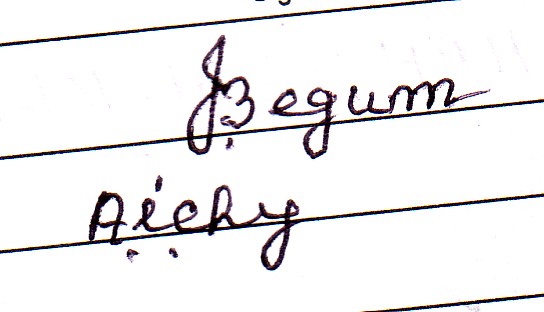 Begum
Aichy